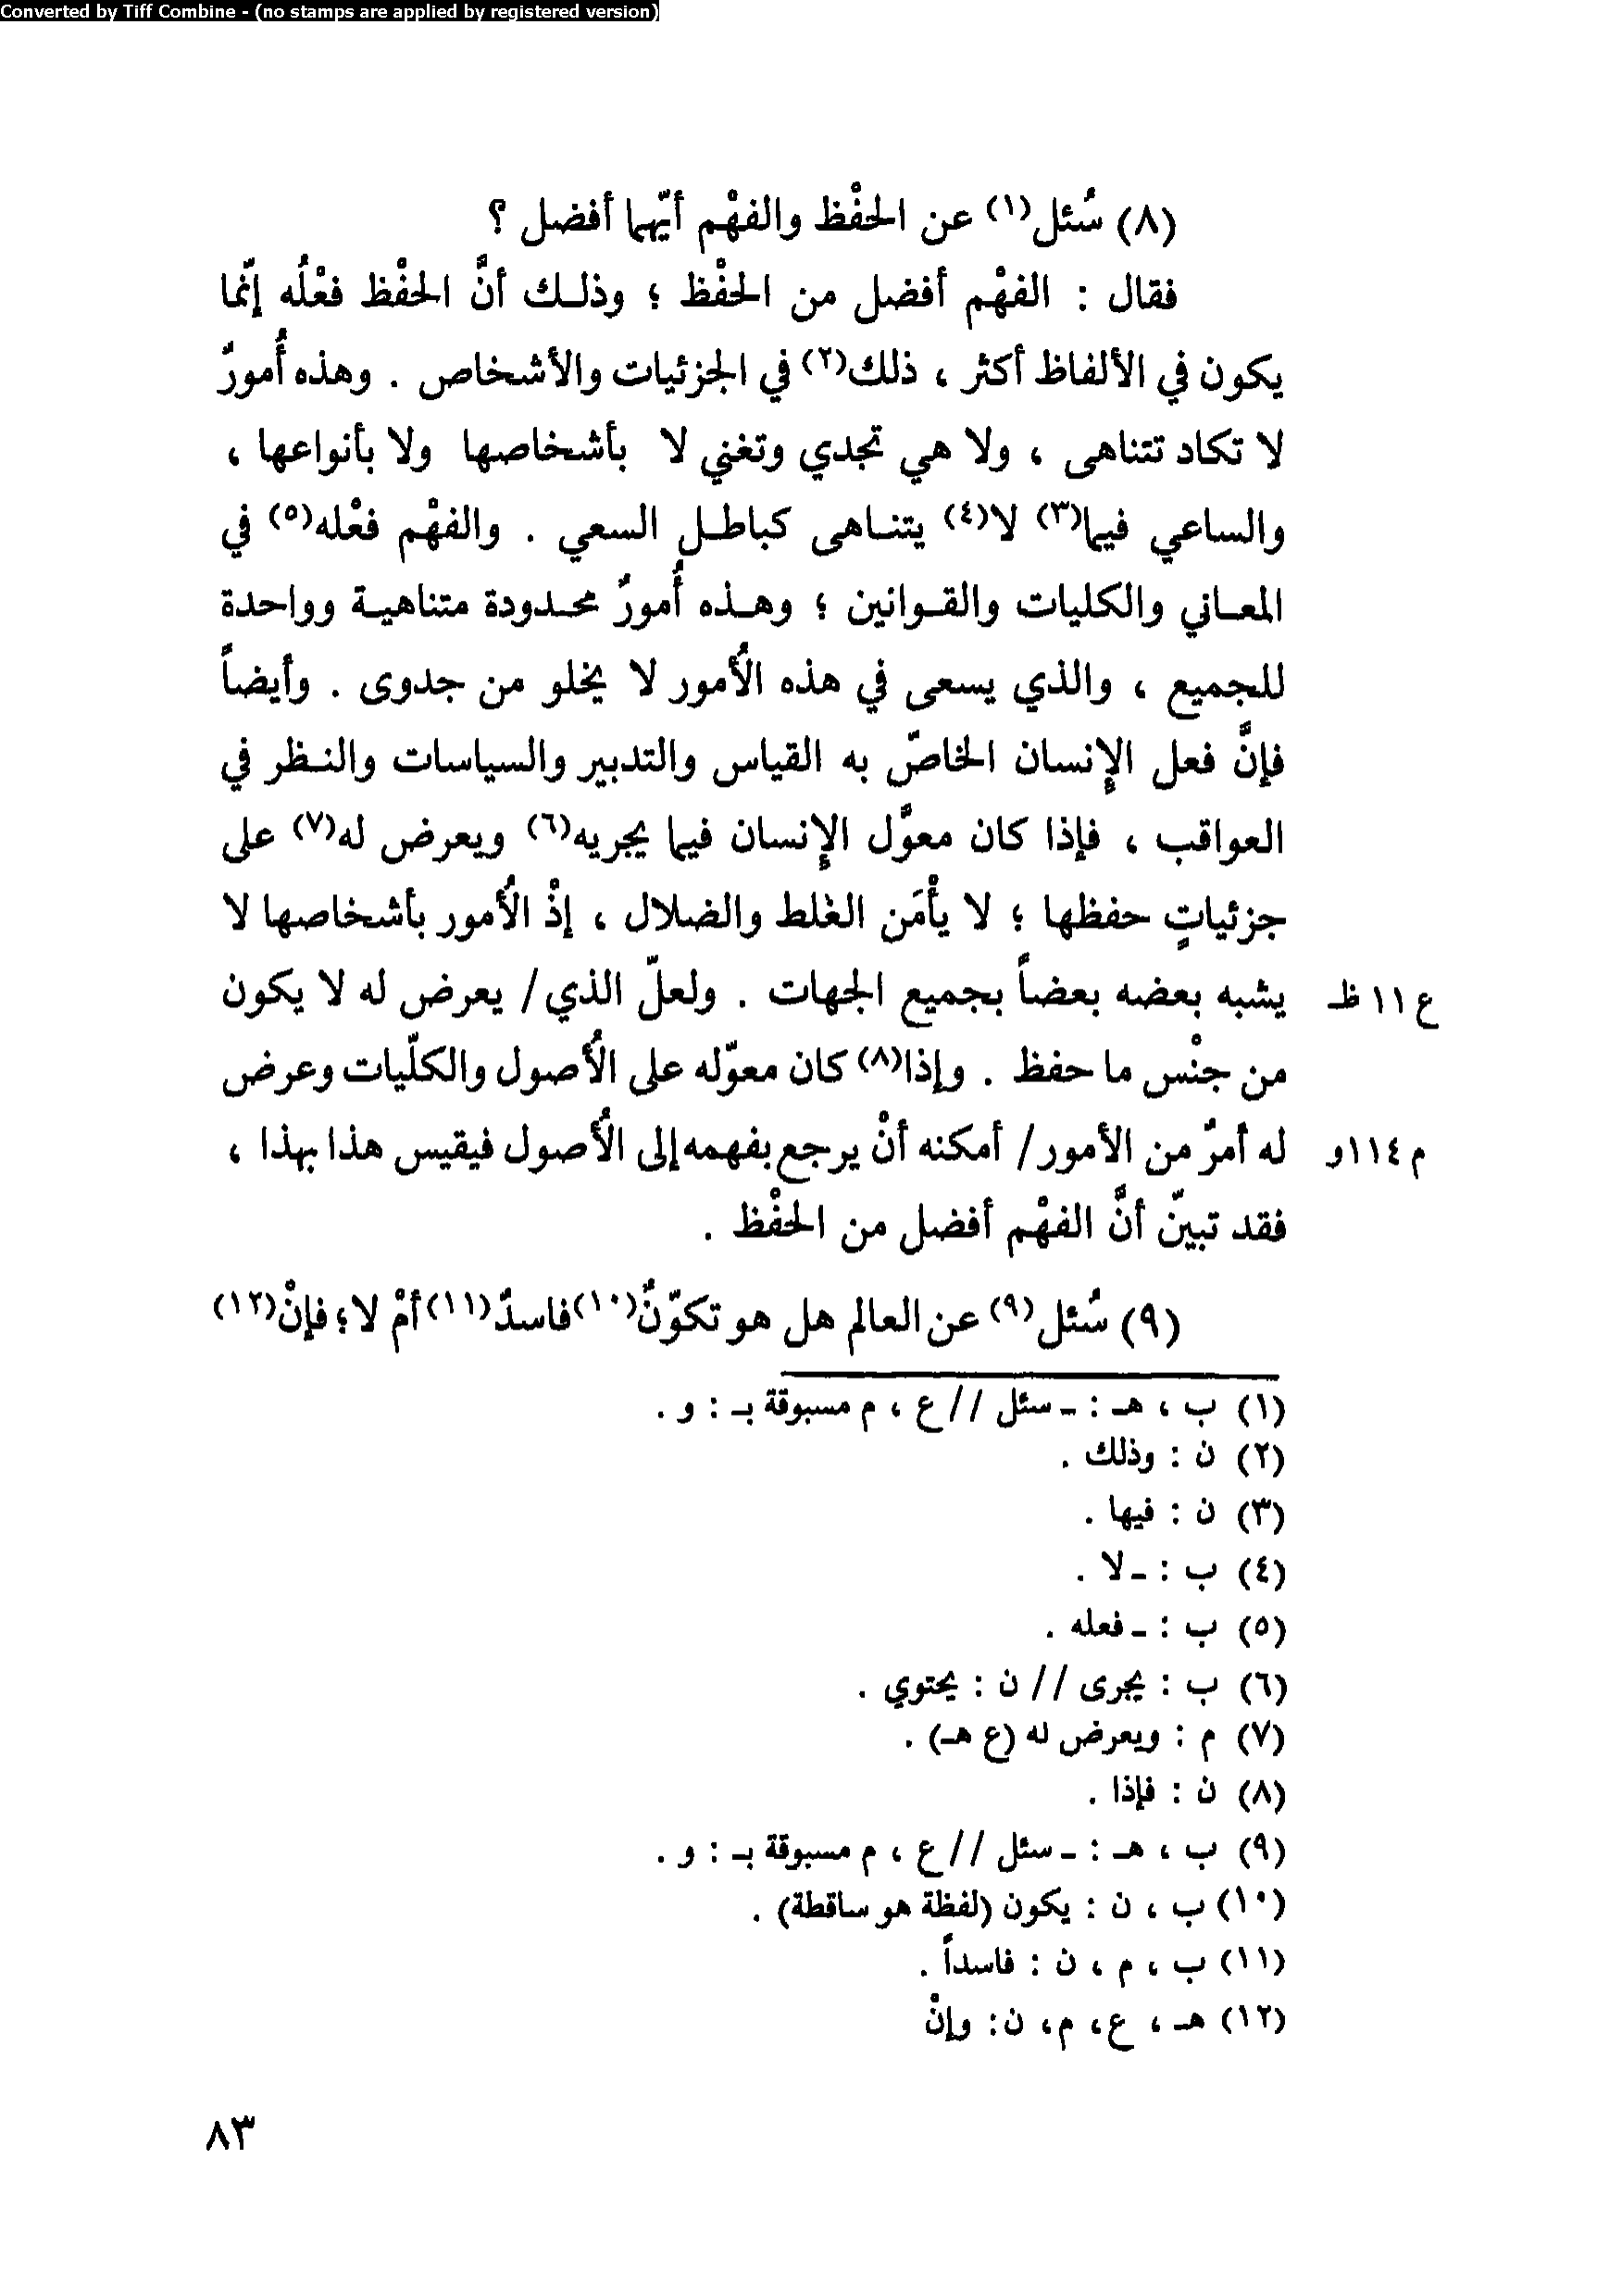 Converted by Tiff Combine - (no stamps are applied by registered version)
(٨) سُئل(١) عن الحفْظ والفهْم أيّهما أفضل ؟
فقال : الفهْم أفضل من الحفْظ ؛ وذلك أنَّ الحفْظ فعْلُه إنّما
يكون في الألفاظ أكثر ، ذلك(٢) في الجزئيات والأشخاص . وهذه أُمورٌ
لا تكاد تتناهى ، ولا هي تجدي وتغني لا بأشخاصها ولا بأنواعها ،
والساعي فيما(٣) لا(٤) يتناهى كباطل السعي . والفهْم فعْله(٥) في
المعاني والكليات والقوانين ؛ وهذه أُمورٌ محدودة متناهية وواحدة
للجميع ، والذي يسعى في هذه الأُمور لا يخلو من جدوى . وأيضاً
فإنَّ فعل الإِنسان الخاصّ به القياس والتدبير والسياسات والنظر في
العواقب ، فإذا كان معوَّل الإِنسان فيما يجريه(٦) ويعرض له(٧) على
جزئياتٍ حفظها ؛ لا يأْمَن الغلط والضلال ، إذْ الأُمور بأشخاصها لا
يشبه بعضه بعضاً بجميع الجهات . ولعلّ الذي / يعرض له لا يكون ع ١١ ظ
من جنْس ما حفظ . وإذا(٨) كان معوّله على الأُصول والكلّيات وعرض
له أمرٌ من الأمور / أمكنه أنْ يرجع بفهمه إلى الأُصول فيقيس هذا بهذا ، م ١١٤ و
فقد تبينّ أنَّ الفهْم أفضل من الحفْظ .
(٩) سُئل(٩) عن العالم هل هو تكوّنٌ(١٠) فاسدٌ(١١) أمْ لا؛ فإنْ(١٢)
(١) ب ، هـ : ـ سئل // ع ، م مسبوقة بـ : و .
(٢) ن : وذلك .
(٣) ن : فيها .
(٤) ب : ـ لا .
(٥) ب : ـ فعله .
(٦) ب : يجرى // ن : يحتوي .
(٧) م : ويعرض له (ع هـ) .
(٨) ن : فإذا .
(٩) ب ، هـ : ـ سئل // ع ، م مسبوقة بـ : و .
(١٠) ب ، ن : يكون (لفظة هو ساقطة) .
(١١) ب ، م ، ن : فاسداً .
(١٢) هـ ، ع، م، ن: وإنْ
٨٣